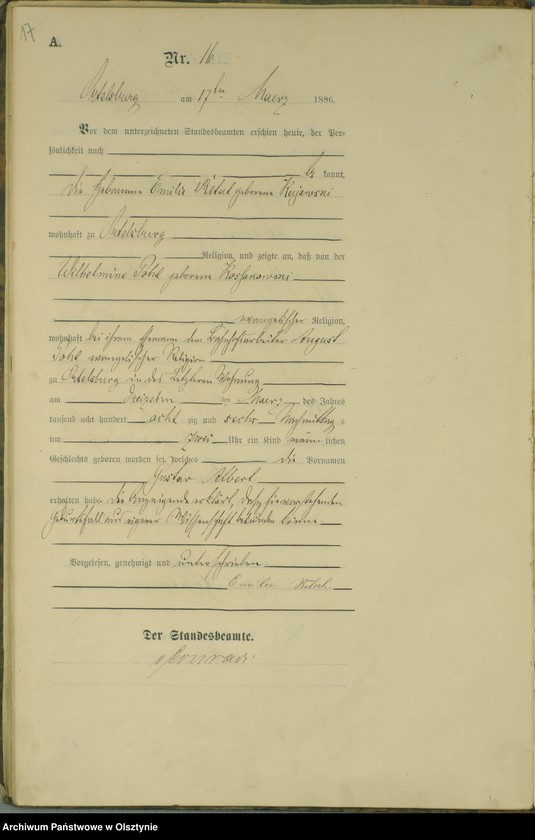 17
A.
Nr. 16
Ortelsburg am 17ten Maerz 1886.
Vor dem unterzeichneten Standesbeamten erschien heute, der Per-
sönlichkeit nach
be kannt,
die Hebamme Emilie geborene Kujawski
wohnhaft zu Ortelsburg
Religion, und zeigte an, daß von der
Wilhelmine Pohl geborene
evangelischer Religion,
wohnhaft bei ihrem Ehemann dem Bahnhofsarbeiter August
Pohl evangelischer Religion
zu Ortelsburg in des Letzteren Wohnung
am dreizehn ten Maerz des Jahres
tausend acht hundert acht zig und sechs Nachmittags
um zwei Uhr ein Kind männ lichen
Geschlechts geboren worden sei, welches die Vornamen
Gustav Albert
erhalten habe. Die Anzeigende erklärt, daß sie vorstehenden
Geburtsfall aus eigener Wissenschaft bekunden könne.
Vorgelesen, genehmigt und unterschrieben
Emilie
Der Standesbeamte.
Conradi
Archiwum Państwowe w Olsztynie